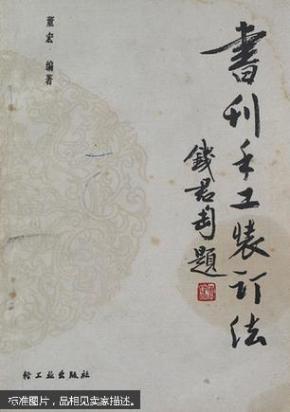 書刊手工装订法
錢君匋題
董宏·编著
轻工业出版社
标准图片，品相见卖家描述。